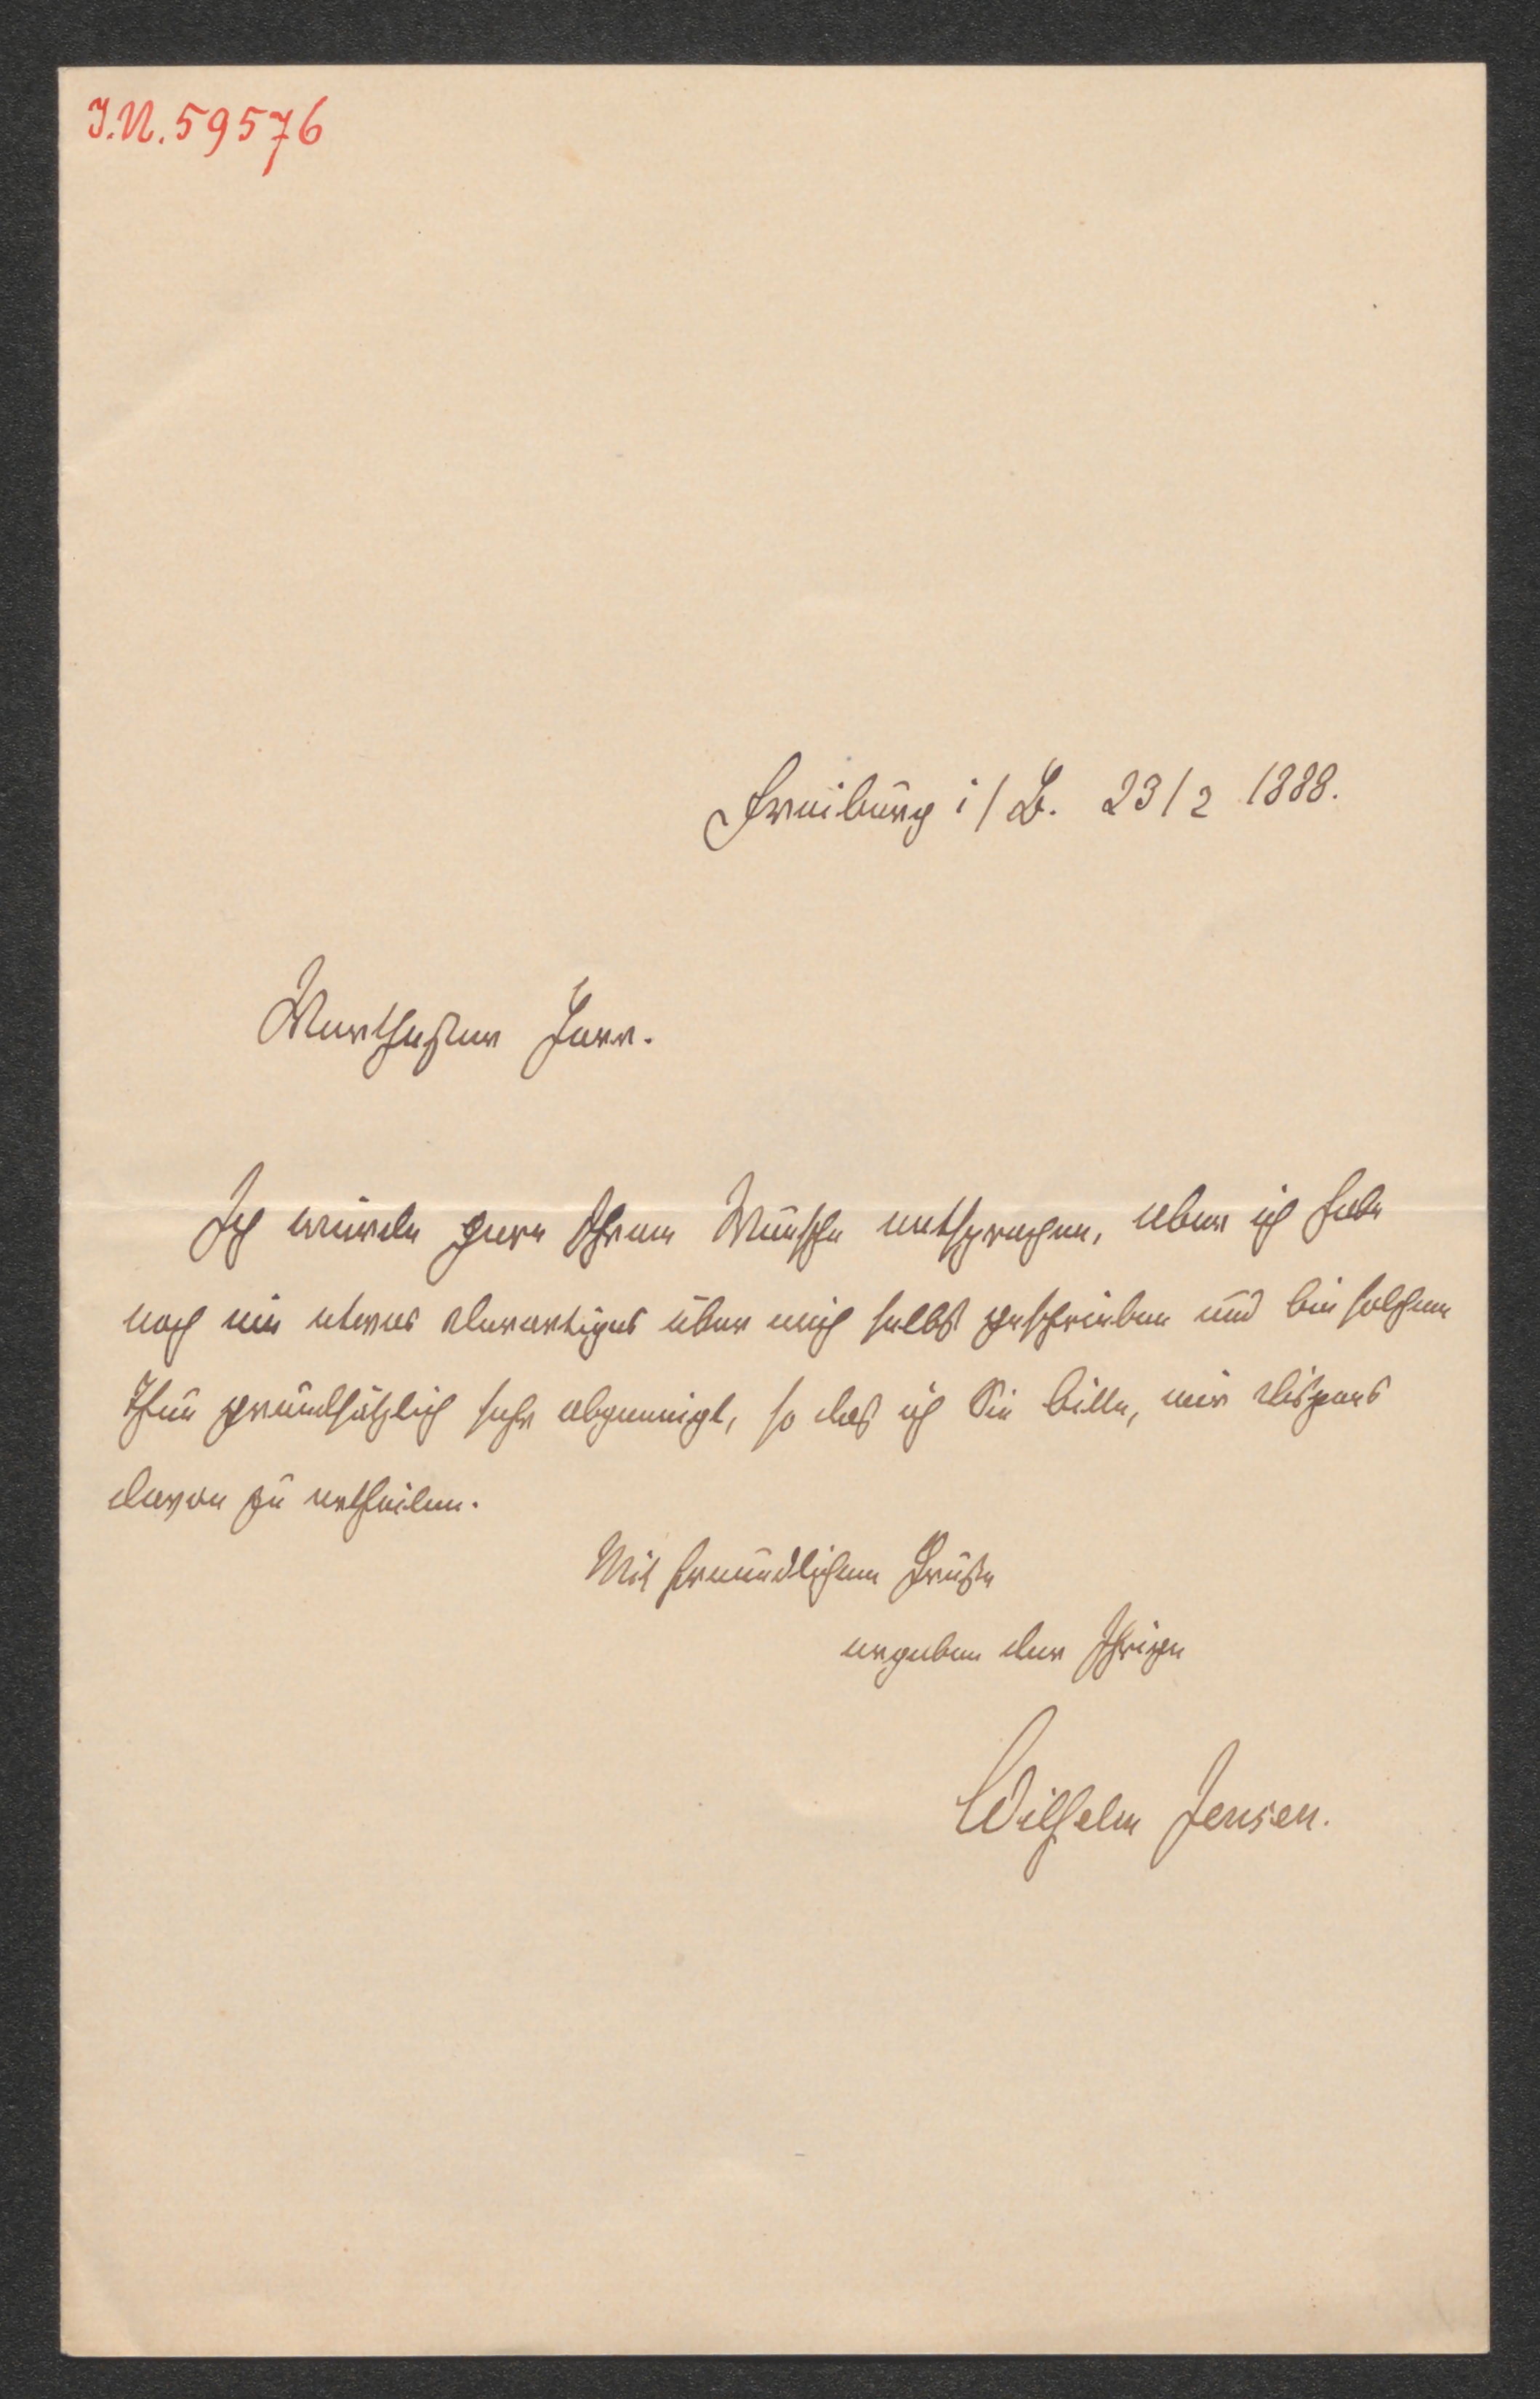 I.N. 59576
Freiburg i/B. 23/2 1888.
Werthester Herr.
Ich würde gern Ihrem Wunsche entsprechen, aber ich habe
noch nie etwas derartiges über mich selbst geschrieben und bin solchem
Thun grundsätzlich sehr abgeneigt, so daß ich Sie bitte, mir Dispens
davon zu ertheilen.
Mit freundlichem Gruße
ergeben der Ihrige
Wilhelm Jensen.